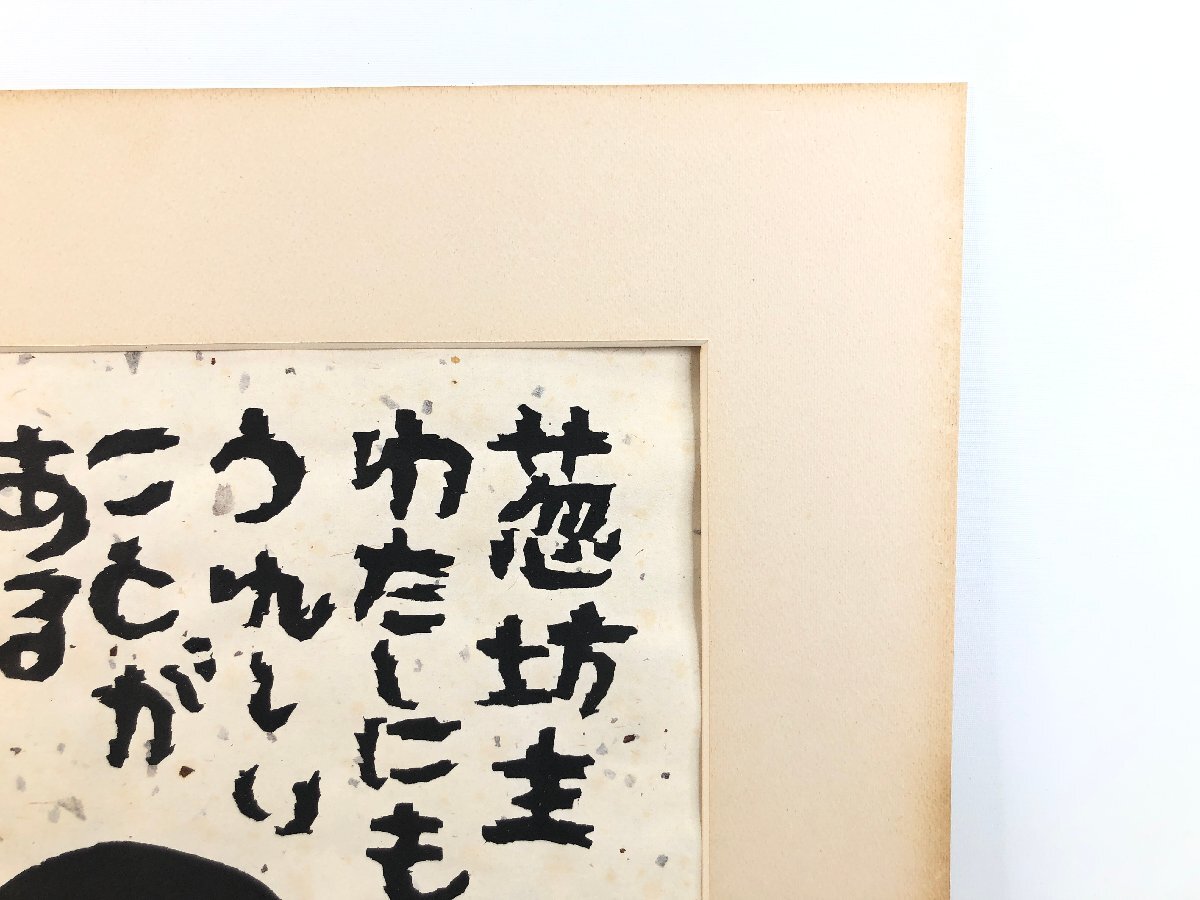 葱坊主
わたしにも
うれしい
ことが
ある